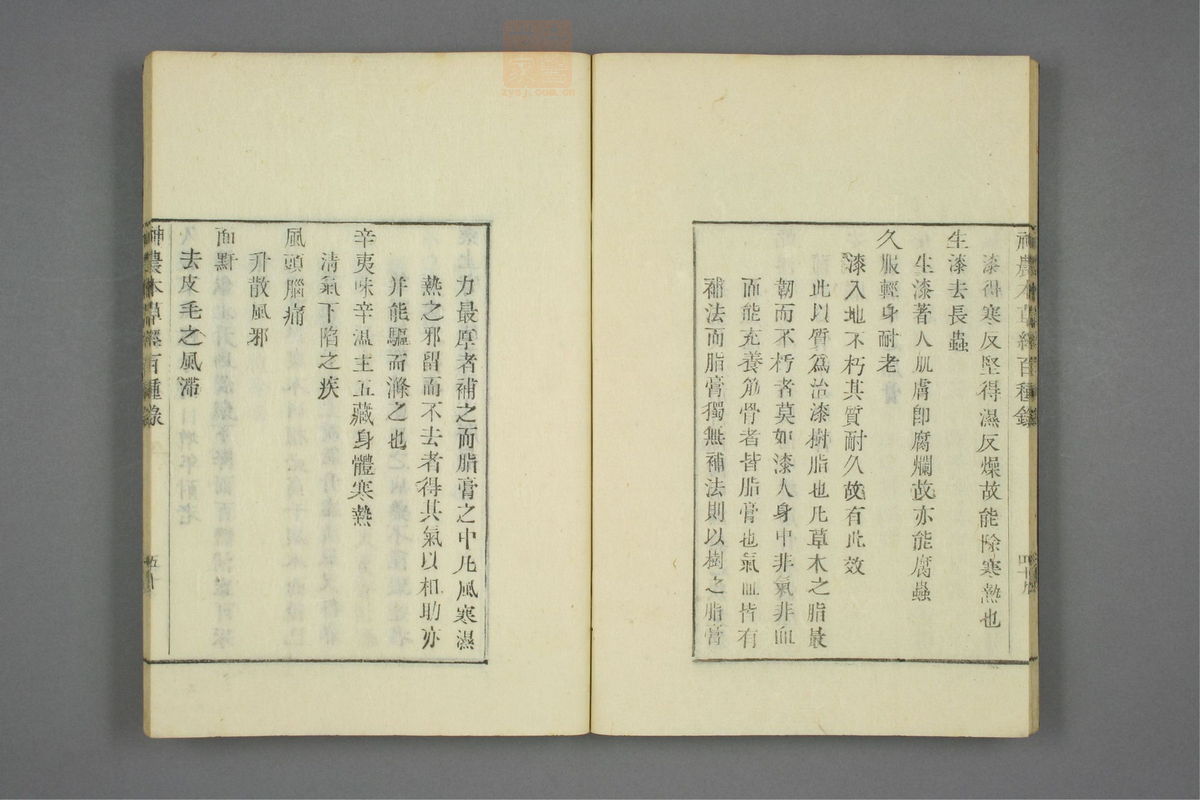 神農本草經百種錄
漆得寒反堅得濕反燥故能除寒熱也
生漆去長蟲
生漆著人肌膚卽腐爛故亦能腐蟲
久服輕身耐老
漆入地不朽其質耐久故有此效
此以質爲治漆樹脂也凡草木之脂最
韌而不朽者莫如漆人身中非氣非血
而能充養筋骨者皆脂膏也氣血皆有
補法而脂膏獨無補法則以樹之脂膏
力最厚者補之而脂膏之中凡風寒濕
熱之邪留而不去者得其氣以和助亦
并能驅而滌之也
辛夷味辛溫主五藏身體寒熱
淸氣下陷之疾
風頭腦痛
升散風邪
面䵟
去皮毛之風滯
神農本草經百種錄
五十
zysj.com.cn